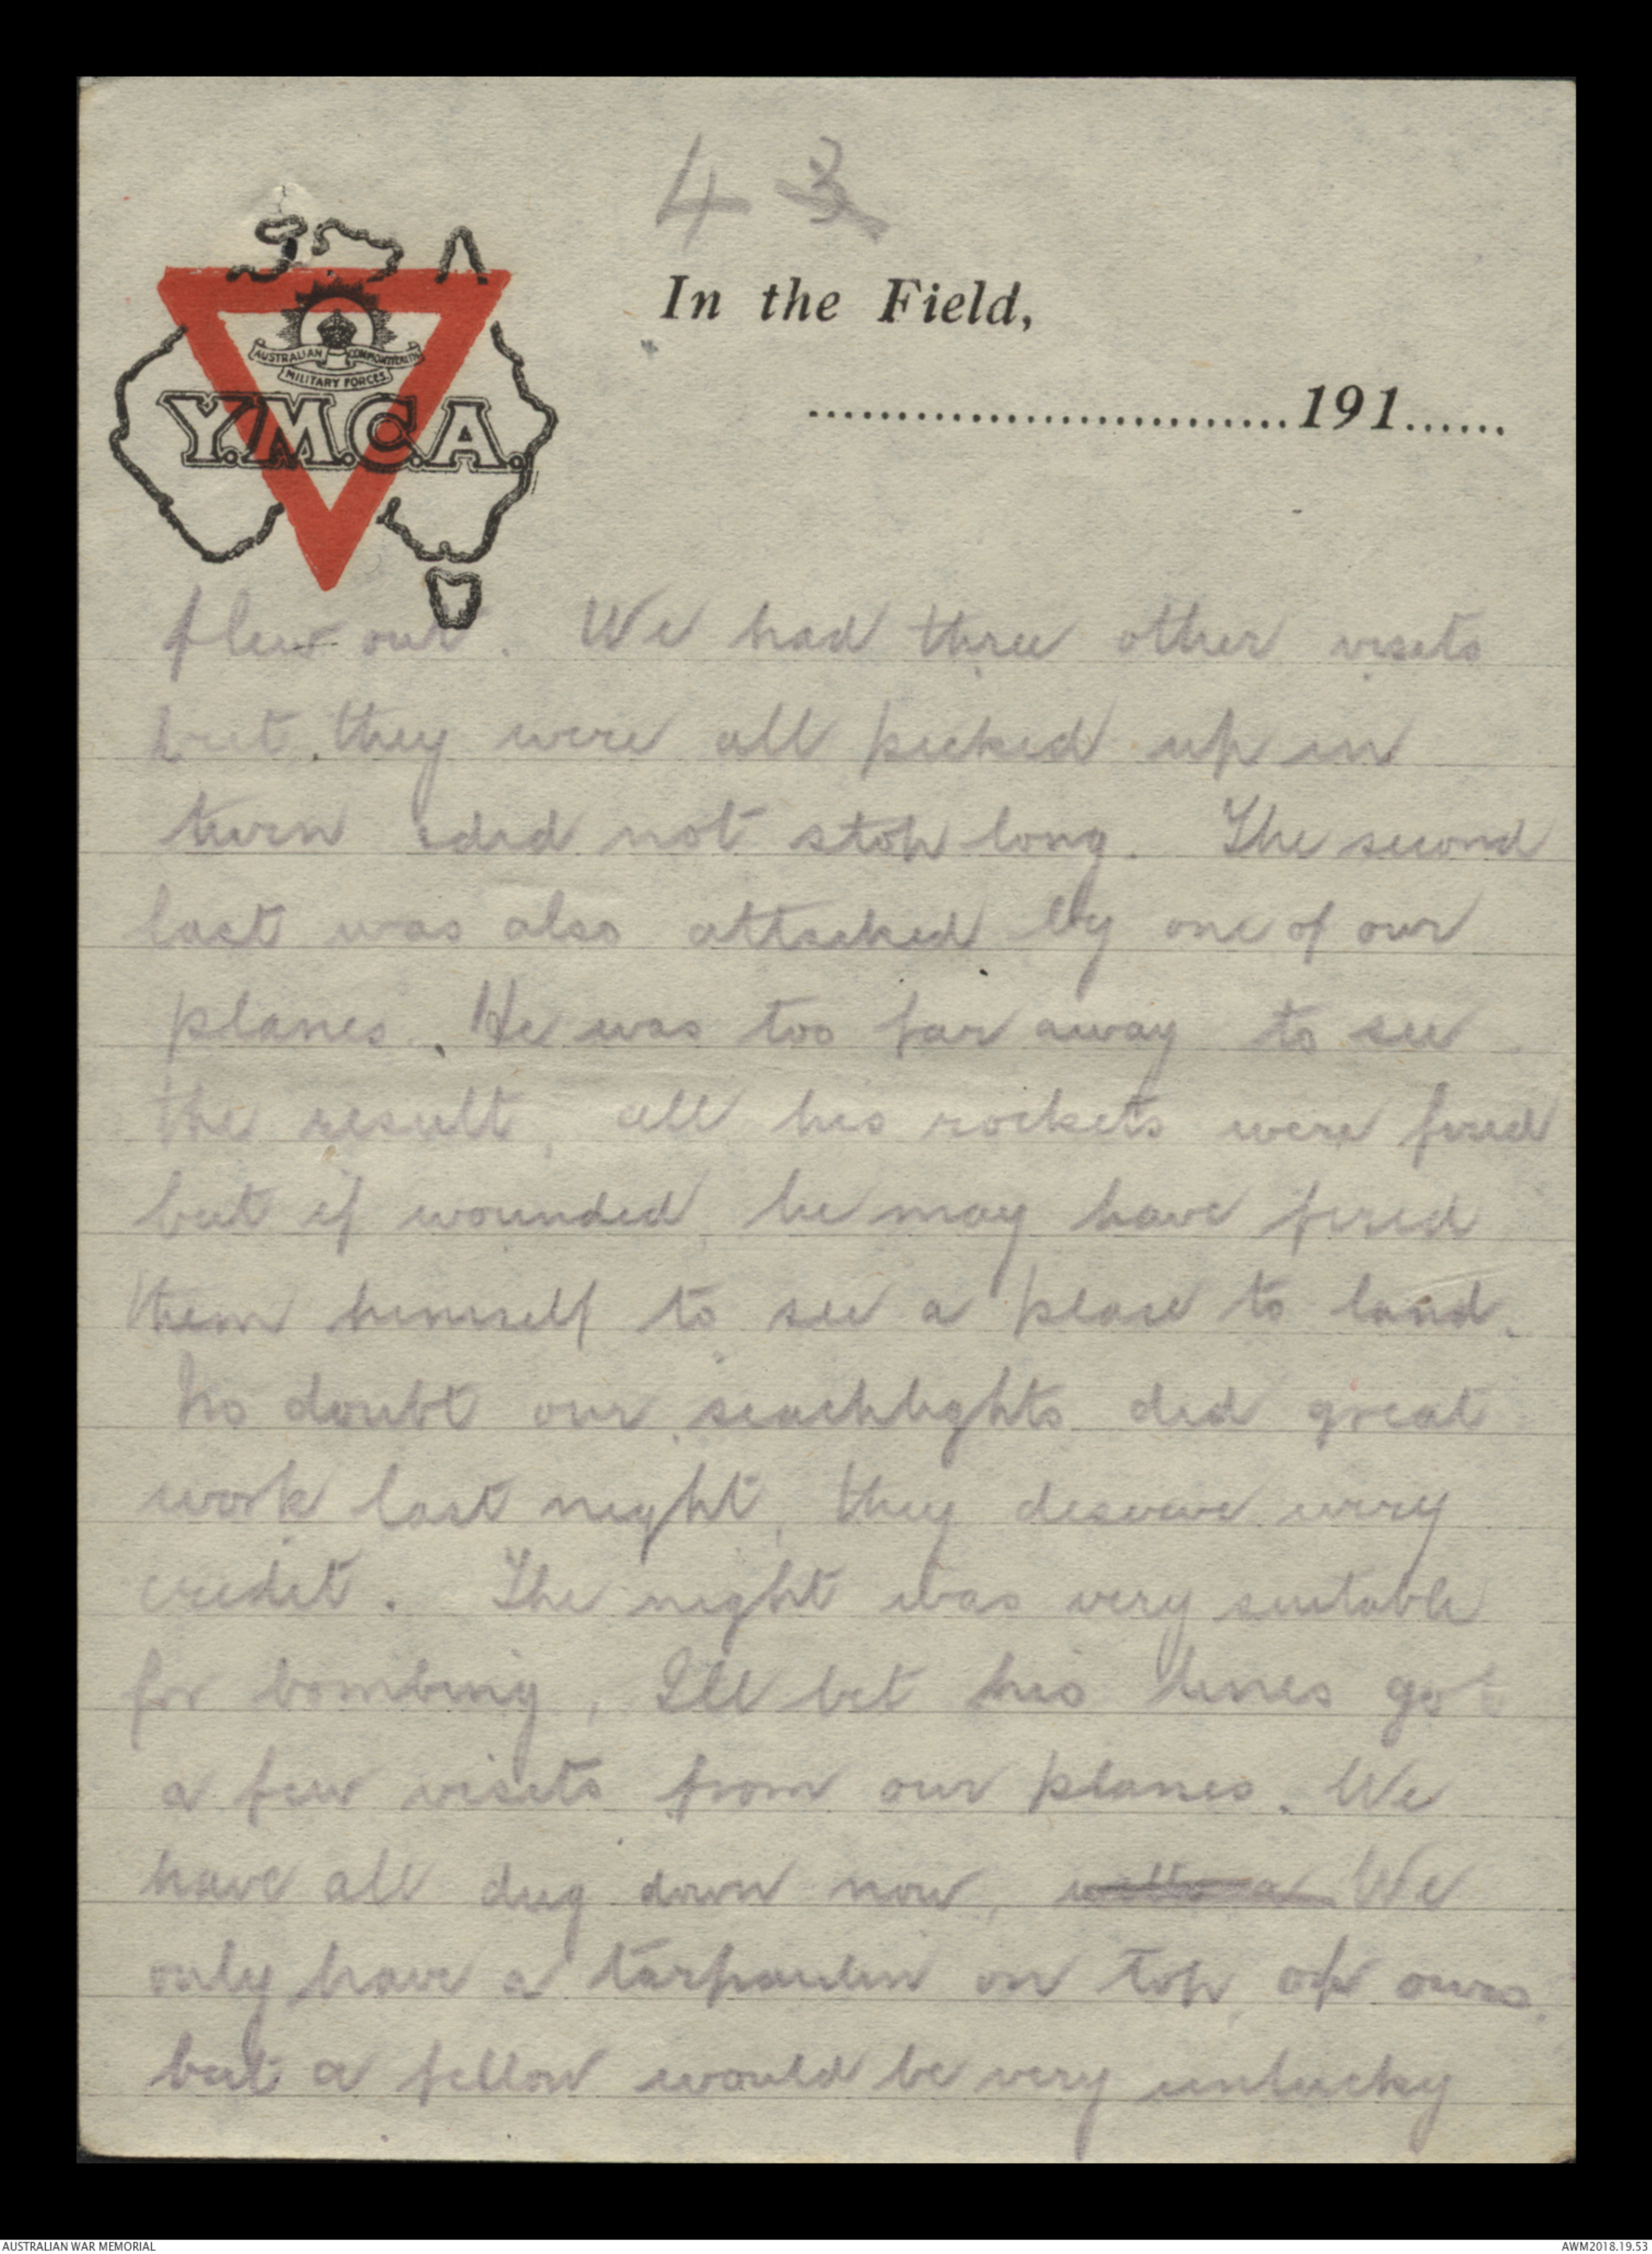 4 3
In the Field,
AUSTRALIAN COMMONWEALTH
MILITARY FORCES
Y.M.C.A.
............................191......
flew out. We had three other visits
but they were all picked up in
turn & did not stop long. The second
last was also attacked by one of our
planes. He was too far away to see
the result, all his rockets were fired
but if wounded he may have fired
them himself to see a place to land.
No doubt our seachlights did great
work last night, they deserve every
credit. The night was very suitable
for bombing, I'll bet his lines got
a few visits from our planes. We
have all dug down now, with a We
only have a tarpaulin on top of ours
but a fellow would be very unlucky
AUSTRALIAN WAR MEMORIAL
AWM2018.19.53